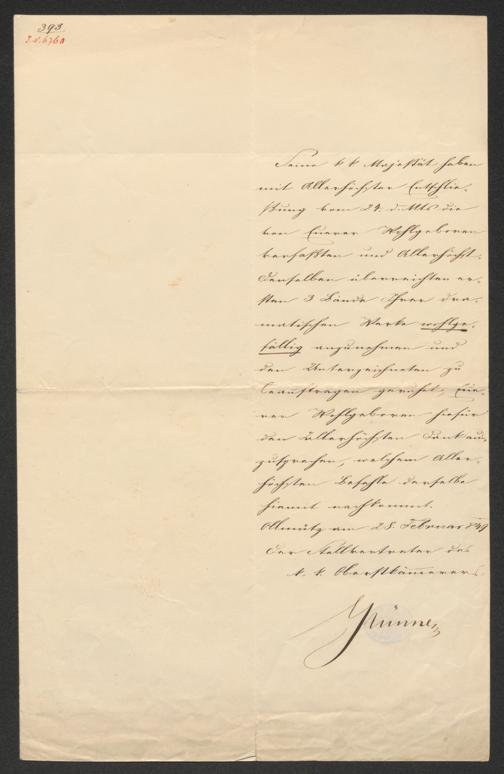 393.
I.N. 6760
Seine k k Majestät haben
mit Allerhöchster Entschlie-
ßung vom 24. d. Mts die
von Euerer Wohlgeboren
verfaßten und Allerhöchst-
denselben überreichten er-
sten 3 Bände Ihrer dra-
matischen Werke wohlge-
fällig anzunehmen und
den Unterzeichneten zu
beauftragen geruhet, Eue-
rer Wohlgeboren hiefür
den Allerhöchsten Dank aus-
zusprechen, welchem Aller-
höchsten Befehle derselbe
hiemit nachkommt.
Ollmütz am 28. Februar 849
Der Stellvertreter des
k. k. Oberstkämmerers
Grünne